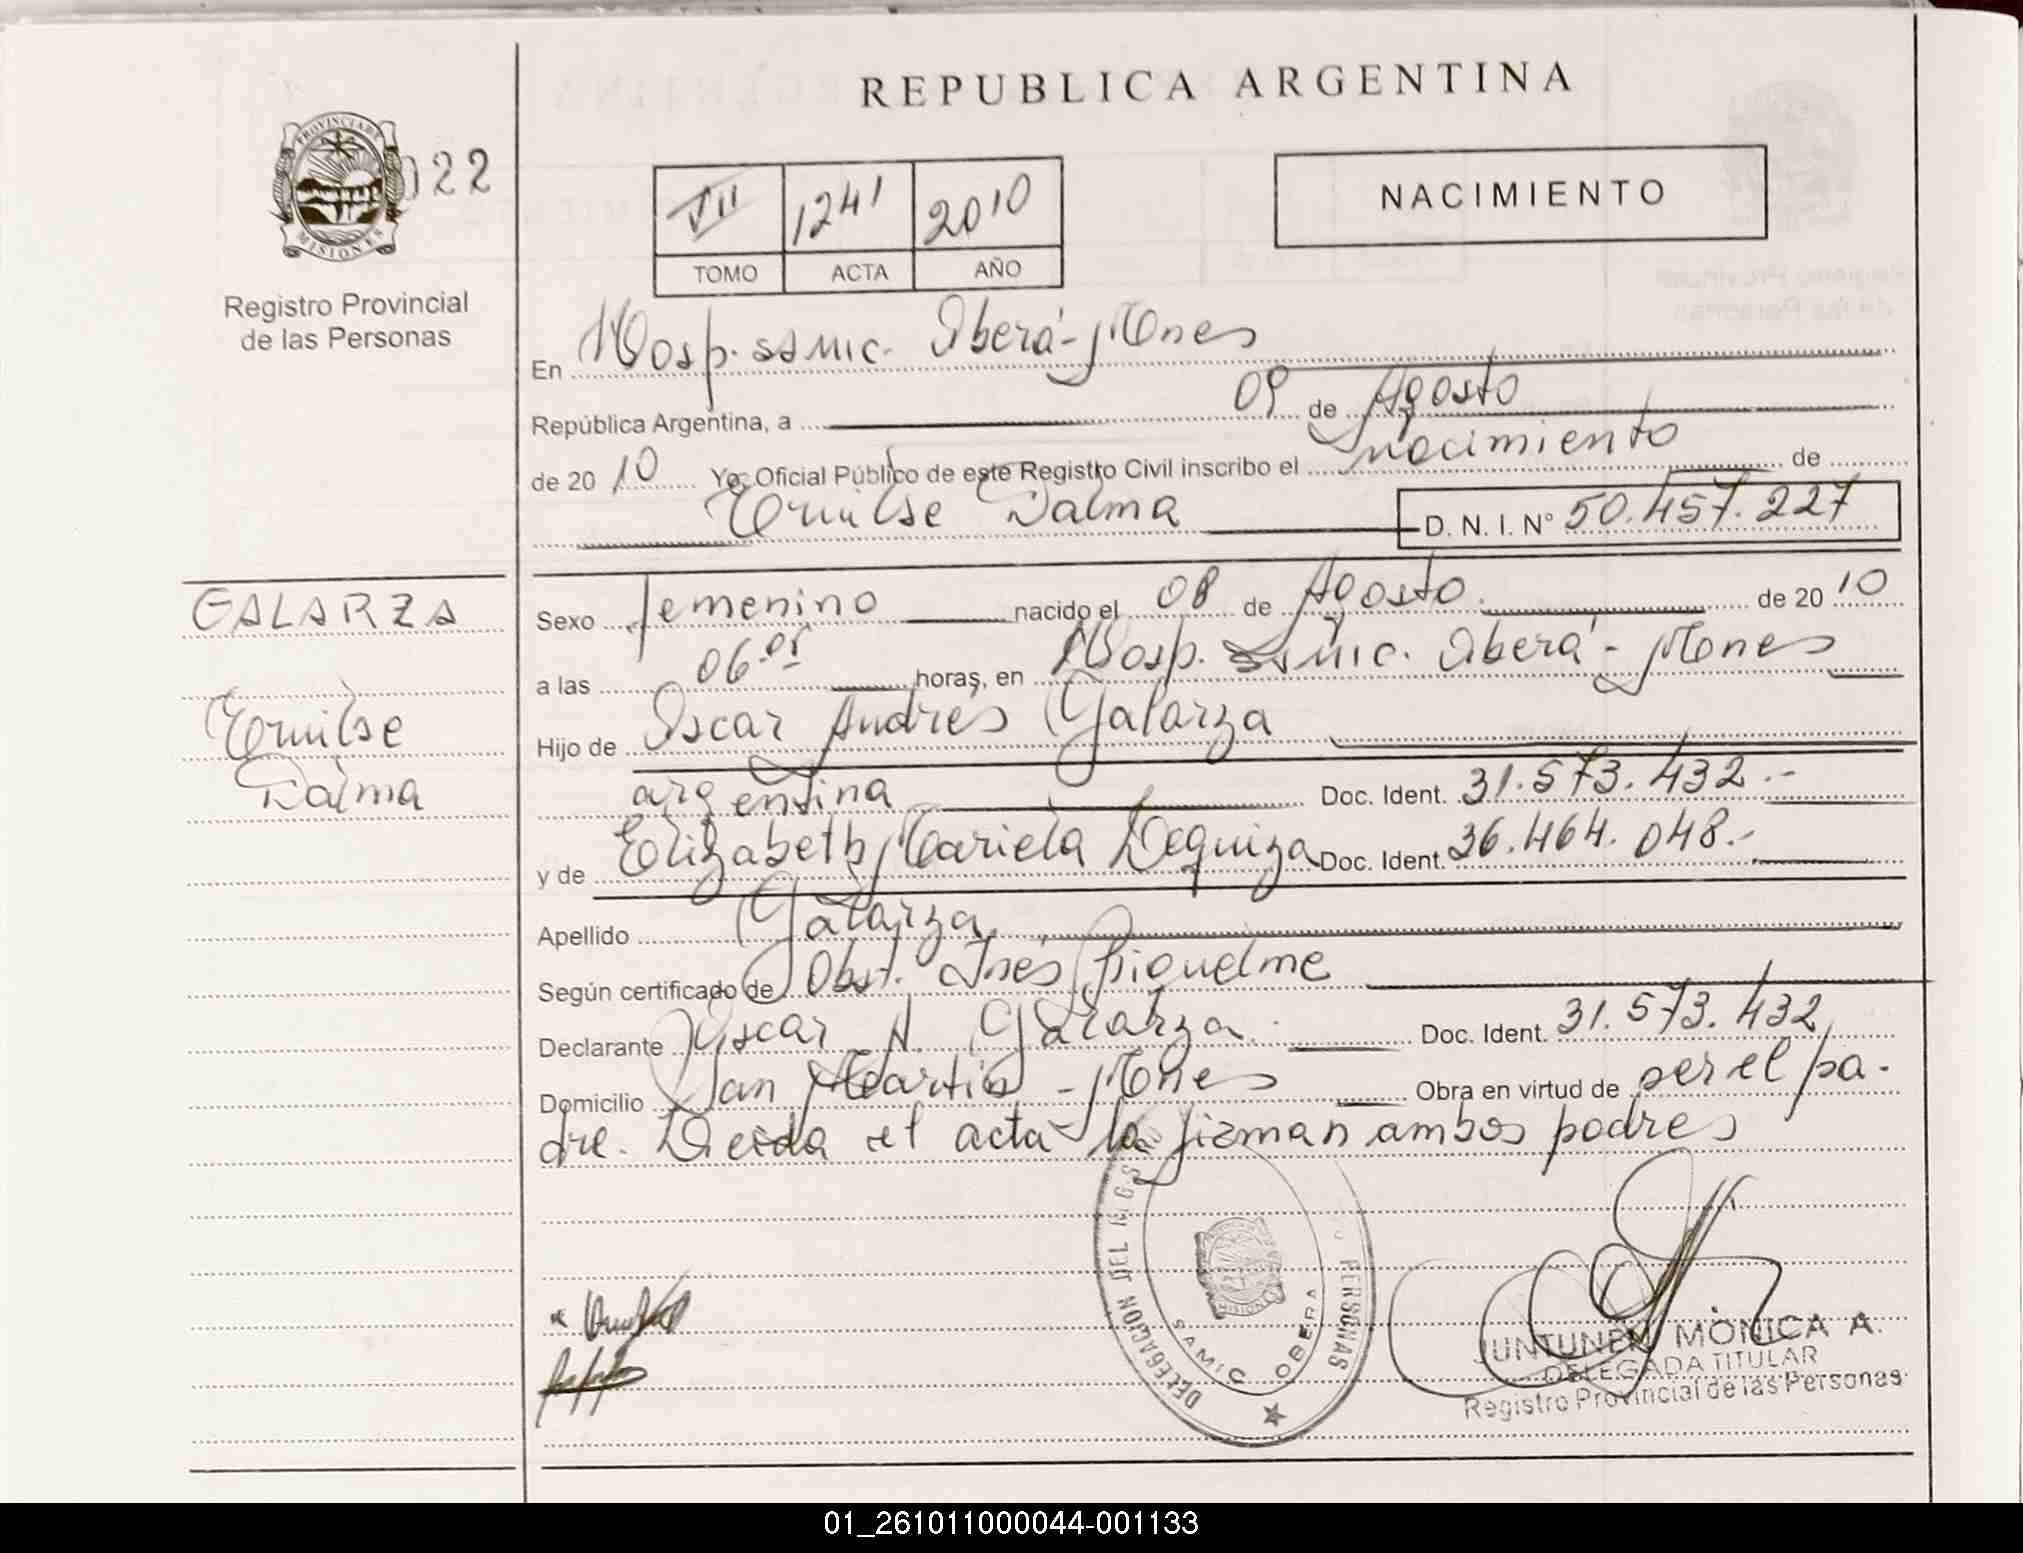 REPUBLICA ARGENTINA
PROVINCIA DE
MISIONES
022
Registro Provincial
de las Personas
VII 1241 2010
TOMO ACTA AÑO
NACIMIENTO
En Hosp. SAMIC. Oberá - Mnes
República Argentina, a 09 de Agosto
de 20 10 Yo, Oficial Público de este Registro Civil inscribo el nacimiento de
Emilse Dalma D. N. I. N° 50.457.227
GALARZA
Emilse
Dalma
Sexo femenino nacido el 08 de Agosto de 20 10
a las 06.05 horas, en Hosp. SAMIC. Oberá - Mnes
Hijo de Oscar Andrés Galarza
argentina Doc. Ident. 31.573.432.-
y de Elizabeth Mariela Lequiza Doc. Ident. 36.464.048.-
Apellido Galarza
Según certificado de Obst. Inés Riquelme
Declarante Oscar A. Galarza. Doc. Ident. 31.573.432
Domicilio San Martín - Mnes Obra en virtud de ser el pa-
dre. Leida el acta la firman ambos padres
DELEGACION DEL PERSONAS
MISIONES
SAMIC OBERA
JUNTUNEN MONICA A.
DELEGADA TITULAR
Registro Provincial de las Personas
01_261011000044-001133